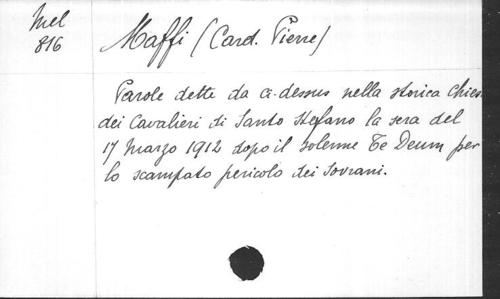 Mel
816
Maffi (Card. Pierre)
Parole dette da ci-dessus nella storica Chiesa
dei Cavalieri di Santo Stefano la sera del
17 Marzo 1912 dopo il solenne Te Deum per
lo scampato pericolo dei Sovrani.